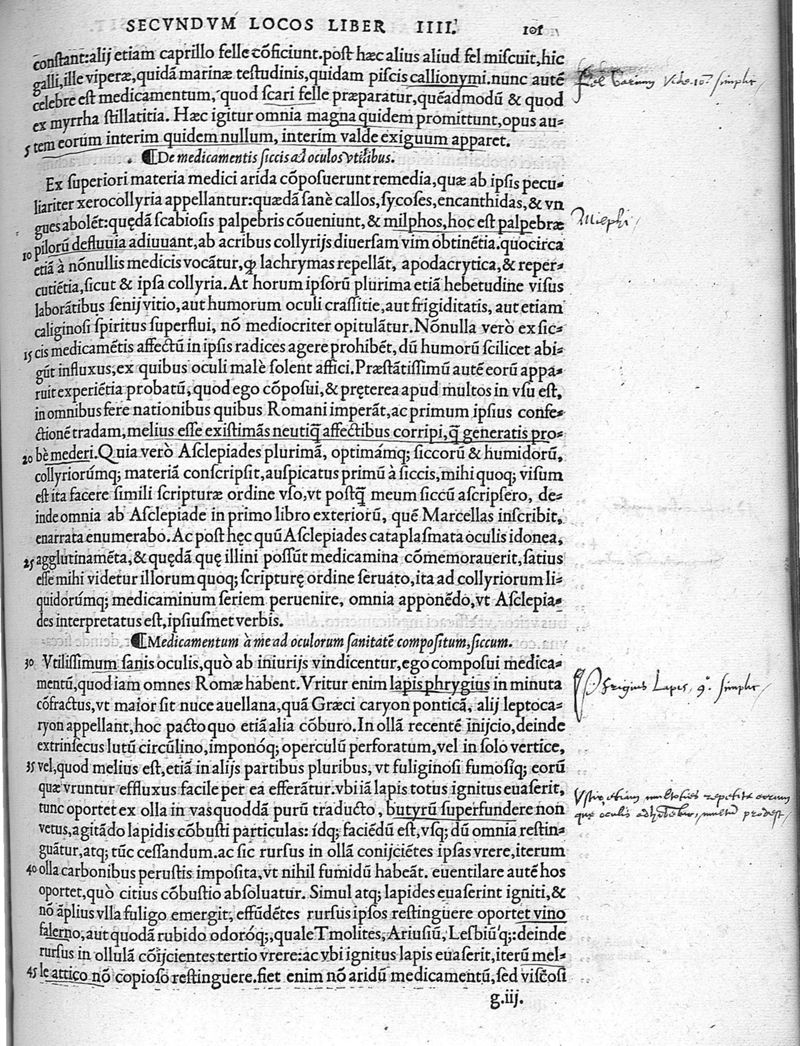 SECVNDVM LOCOS LIBER IIII. 101
constant: alij etiam caprillo felle cõficiunt. post hæc alius aliud fel miscuit, hic
galli, ille viperæ, quidã marinæ testudinis, quidam piscis callionymi. nunc autẽ
celebre est medicamentum, quod scari felle præparatur, quẽadmodũ & quod
ex myrrha stillatitia. Hæc igitur omnia magna quidem promittunt, opus au-
5 tem eorum interim quidem nullum, interim valde exiguum apparet.
De medicamentis siccis ad oculos vtilibus.
Ex superiori materia medici arida cõposuerunt remedia, quæ ab ipsis pecu-
liariter xerocollyria appellantur: quædã sanè callos, sycoses, encanthidas, & vn
gues abolẽt: quędã scabiosis palpebris cõueniunt, & milphos, hoc est palpebræ
10 pilorũ defluuia adiuuant, ab acribus collyrijs diuersam vim obtinẽtia. quocirca
etiã à nõnullis medicis vocãtur, ꝙ lachrymas repellãt, apodacrytica, & reper-
cutiẽtia, sicut & ipsa collyria. At horum ipsorũ plurima etiã hebetudine visus
laborãtibus senij vitio, aut humorum oculi crassitie, aut frigiditatis, aut etiam
caliginosi spiritus superflui, nõ mediocriter opitulãtur. Nõnulla verò ex sic-
15 cis medicamẽtis affectũ in ipsis radices agere prohibẽt, dũ humorũ scilicet abi-
gũt influxus, ex quibus oculi malè solent affici. Præstãtissimũ autẽ eorũ appa-
ruit experiẽtia probatũ, quod ego cõposui, & pręterea apud multos in vsu est,
in omnibus fere nationibus quibus Romani imperãt, ac primum ipsius confe-
ctionẽ tradam, melius esse existimãs neutiꝗ̃ affectibus corripi, ꝗ̃ generatis pro-
20 bè mederi. Quia verò Asclepiades plurimã, optimámq; siccorũ & humidorũ,
collyriorúmq; materiã conscripsit, auspicatus primũ à siccis, mihi quoq; visum
est ita facere simili scripturæ ordine vso, vt postꝗ̃ meum siccũ ascripsero, de-
inde omnia ab Asclepiade in primo libro exteriorũ, quẽ Marcellas inscribit,
enarrata enumerabo. Ac post hęc quũ Asclepiades cataplasmata oculis idonea,
25 agglutinamẽta, & quędã quę illini possũt medicamina cõmemorauerit, satius
esse mihi videtur illorum quoq; scripturę ordine seruato, ita ad collyriorum li-
quidorúmq; medicaminum seriem peruenire, omnia apponẽdo, vt Asclepia-
des interpretatus est, ipsiusmet verbis.
Medicamentum à me ad oculorum sanitatẽ compositum, siccum.
30 Vtilissimum sanis oculis, quò ab iniurijs vindicentur, ego composui medica-
mentũ, quod iam omnes Romæ habent. Vritur enim lapis phrygius in minuta
cõfractus, vt maior sit nuce auellana, quã Græci caryon ponticã, alij leptoca-
ryon appellant, hoc pacto quo etiã alia cõburo. In ollã recentẽ inijcio, deinde
extrinsecus lutũ circũlino, imponóq; operculũ perforatum, vel in solo vertice,
35 vel, quod melius est, etiã in alijs partibus pluribus, vt fuliginosi fumosiq; eorũ
quæ vruntur effluxus facile per ea efferãtur. vbi iã lapis totus ignitus euaserit,
tunc oportet ex olla in vas quoddã purũ traducto, butyrũ superfundere non
vetus, agitãdo lapidis cõbusti particulas: idq; faciẽdũ est, vsq; dũ omnia restin-
guãtur, atq; tũc cessandum. ac sic rursus in ollã conijciẽtes ipsas vrere, iterum
40 olla carbonibus perustis imposita, vt nihil fumidũ habeãt. euentilare autẽ hos
oportet, quò citius cõbustio absoluatur. Simul atq; lapides euaserint igniti, &
nõ ãplius vlla fuligo emergit, effũdẽtes rursus ipsos restinguere oportet vino
falerno, aut quodã rubido odoróq;, quale Tmolites, Ariusiũ, Lesbiũ'q;: deinde
rursus in ollulã cõijcientes tertio vrere: ac vbi ignitus lapis euaserit, iterũ mel-
45 le attico nõ copioso restinguere. fiet enim nõ aridũ medicamentũ, sed viscosi
g.iij.
Fel Varium Vide. 10. simplic.
Milphi
Phrigius Lapis, 9. simplic.
Vstio etiam multoties repetita eorum
que oculis adhibentur, multum prodest,